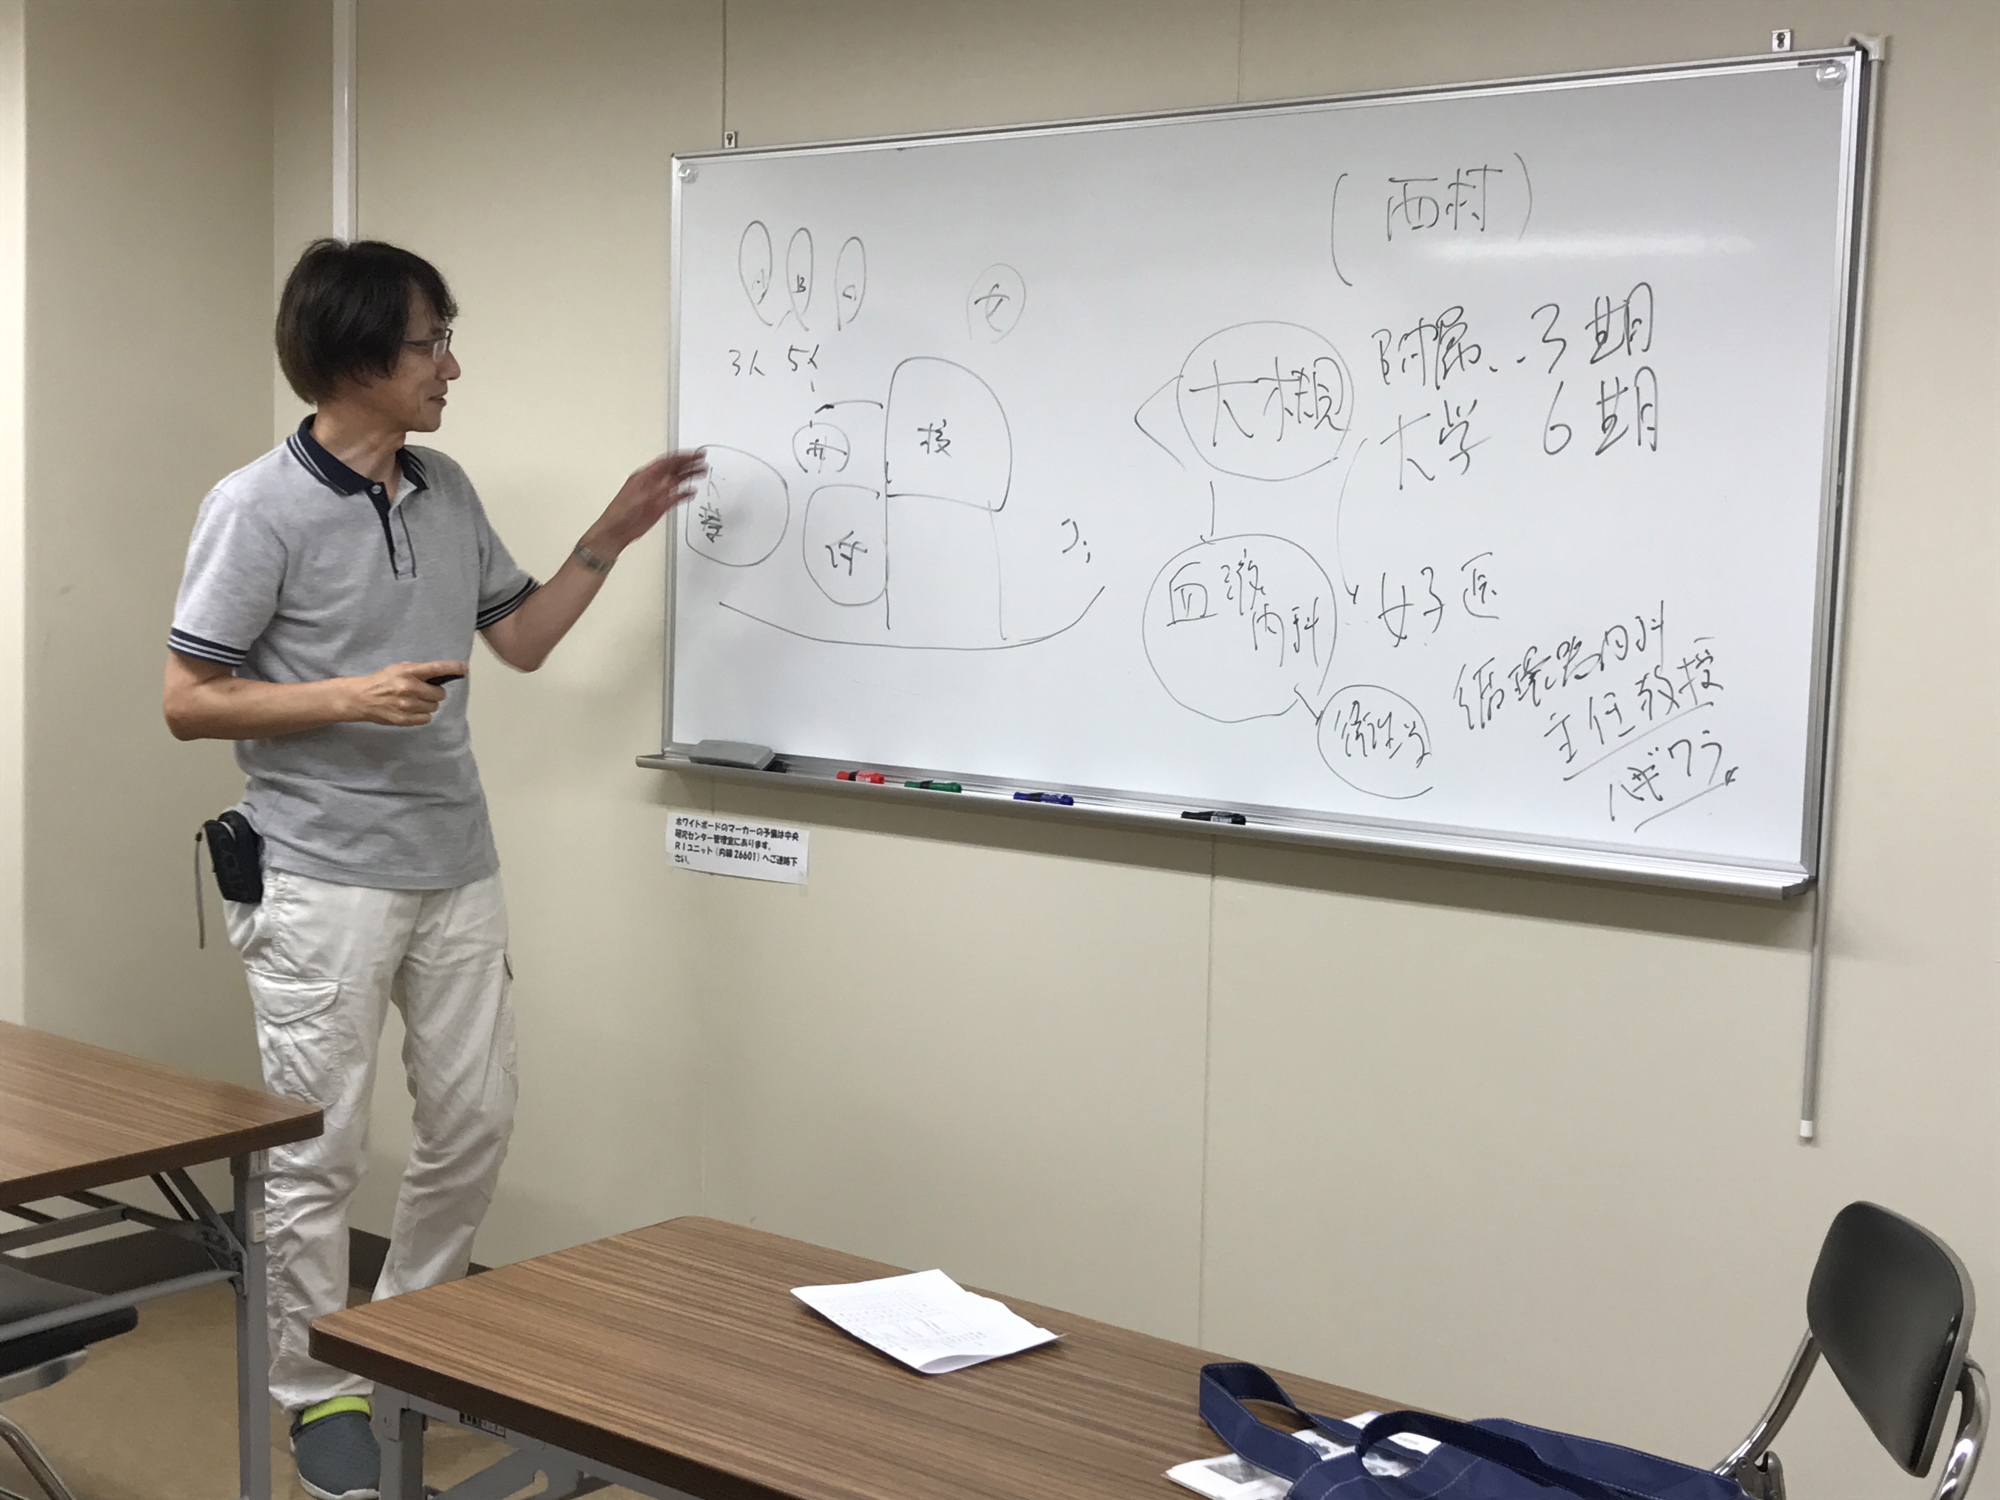 A B C
3人 5人
女
(西村)
附属 3期
大学 6期
大槻
血液
内科
女子医
循環器内科
主任教授
ハギワラ
衛生学
ホワイトボードのマーカーの予備は中央
研究センター管理室にあります。
RIユニット(内線26601)へご連絡下
さい。